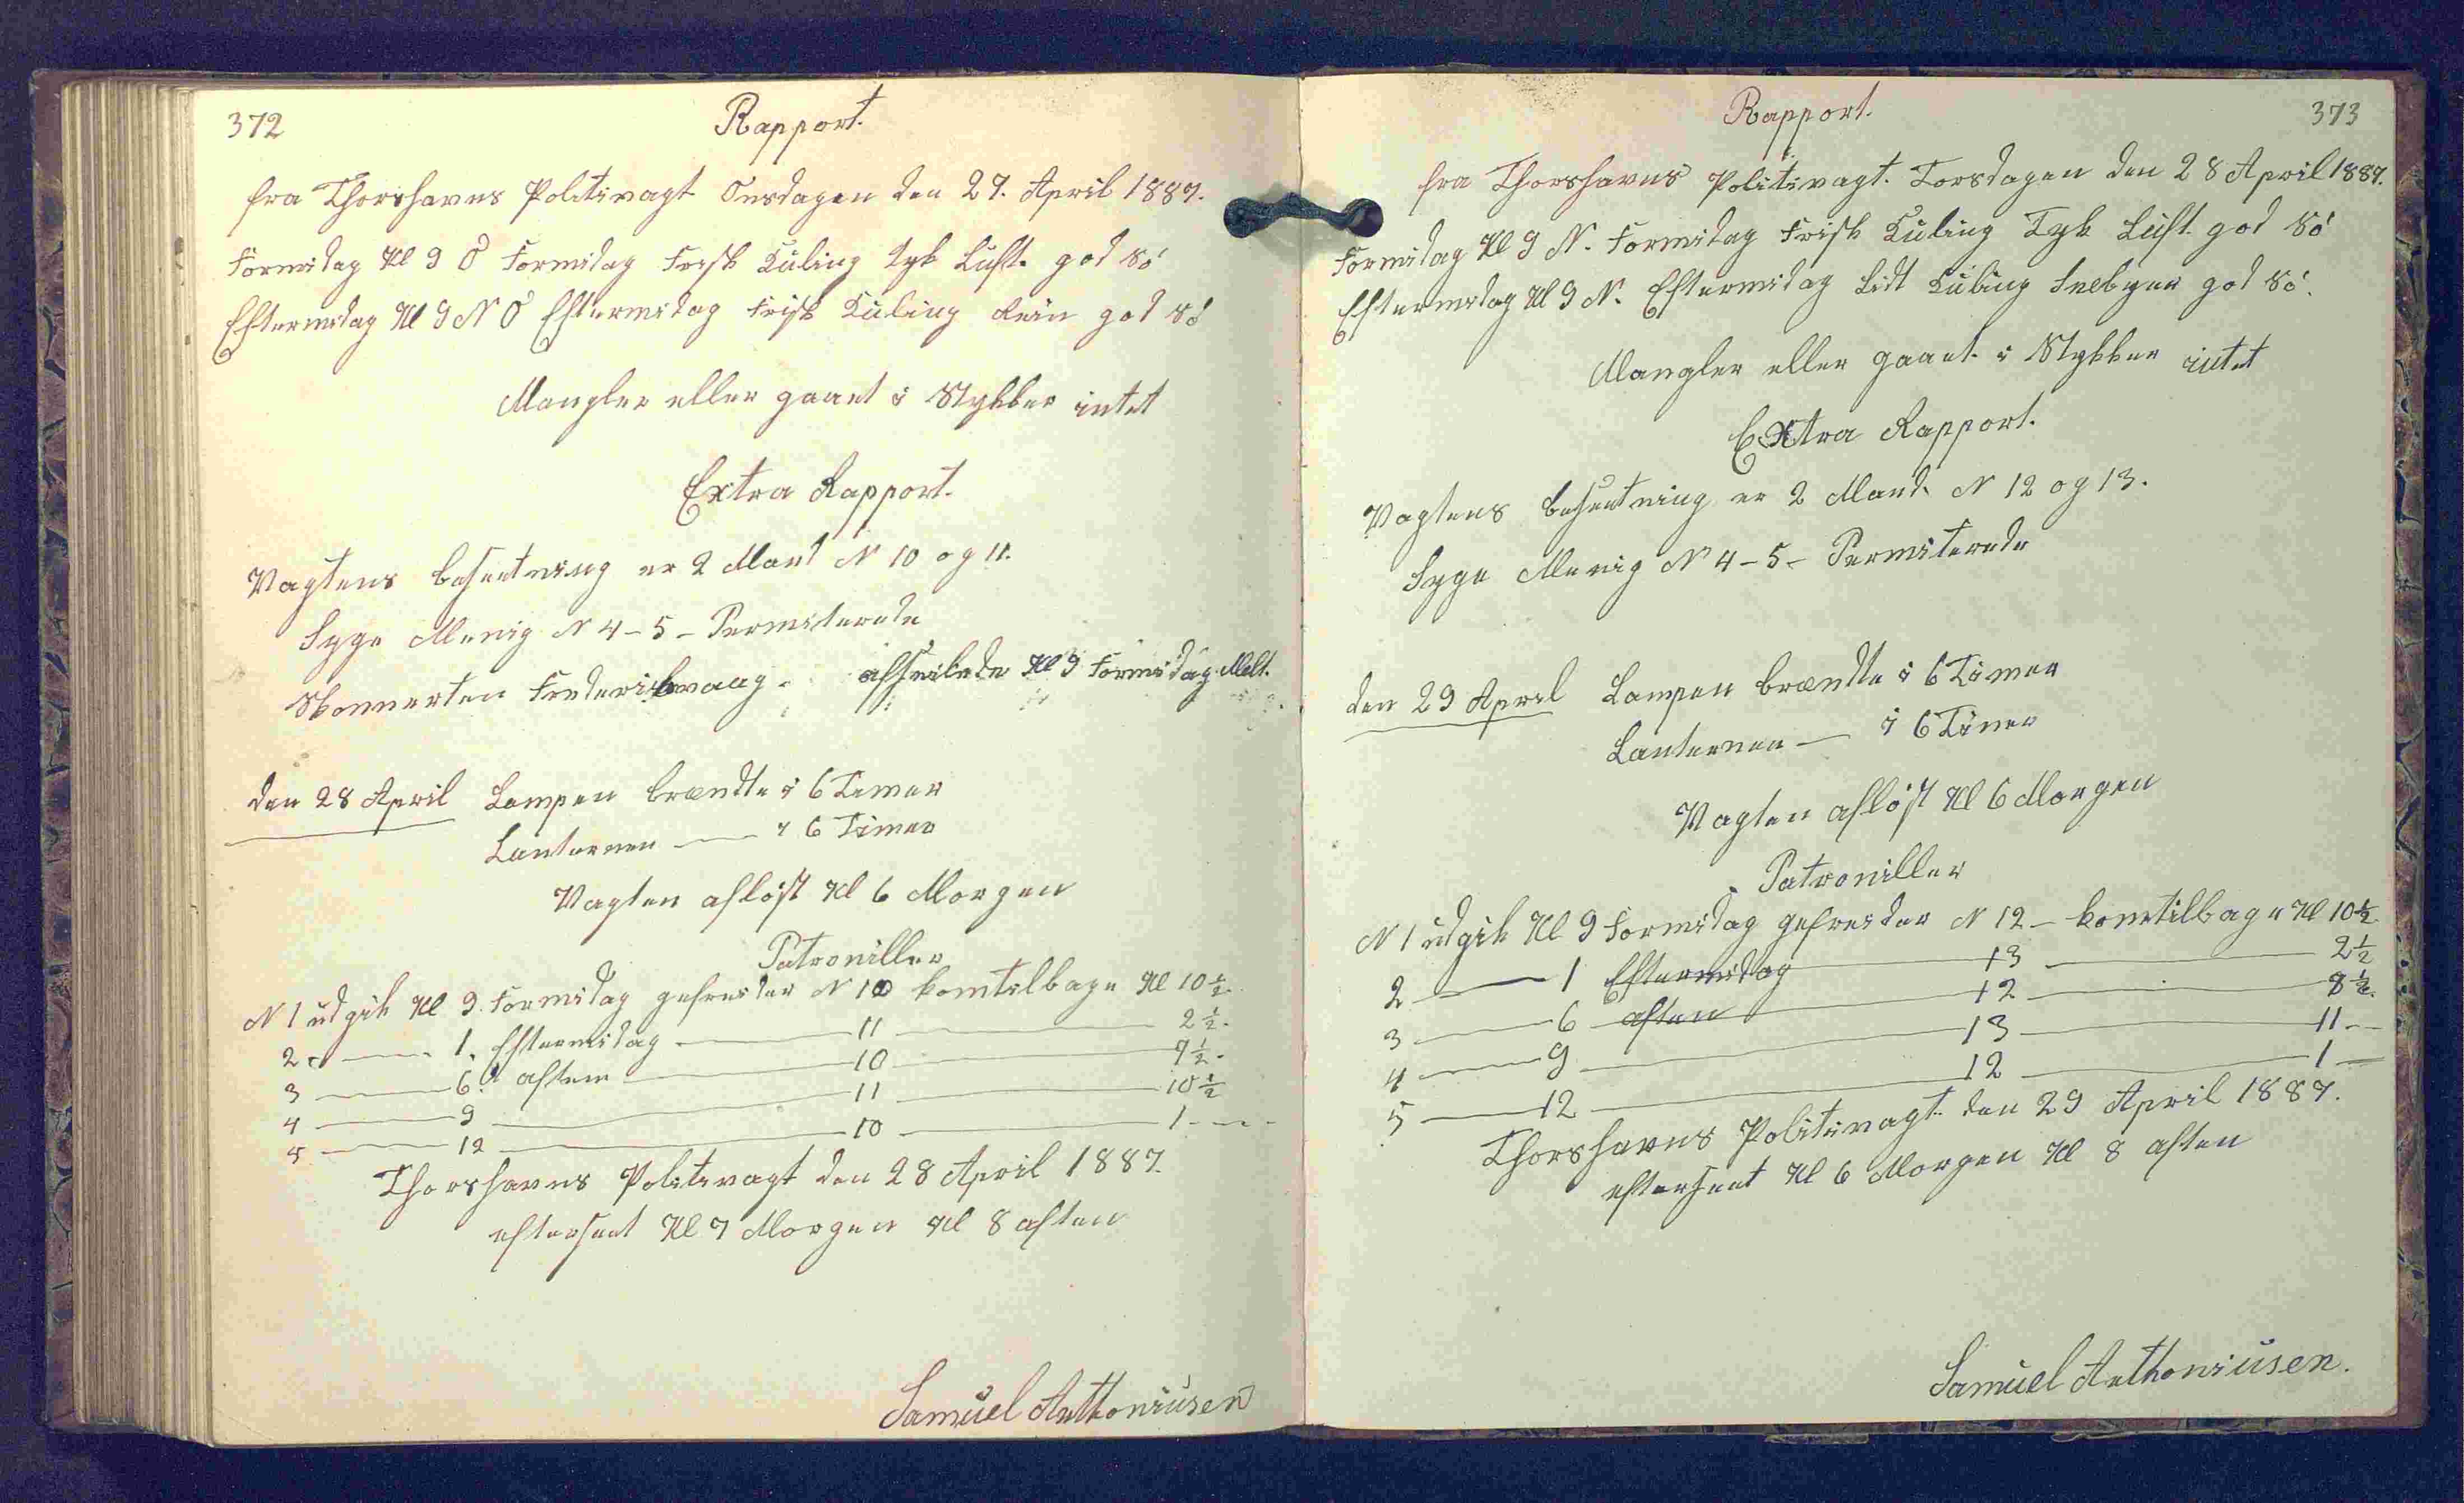 372
Rapport.
fra Thorshavns Politivagt Onsdagen den 27. April 1887.
Formidag Kl 9 O Formidag Frisk Kuling tyk Luft. god Sö
Eftermidag Kl 9 N O Eftermidag Frisk Kuling Rein god Sö
Mangler eller gaaet i Stykker intet
Extra Rapport.
Vagtens besætning er 2 Mand N 10 og 11.
Syge Menig N 4-5- Permiterede
Skonnerten Frederiksvaag afseilede Kl 9 Formidag
den 28 April Lampen brændte i 6 Timer
Lanternen — i 6 Timer
Vagten aflöst Kl 6 Morgen
Patroniller
N 1 udgik Kl 9. Formidag gefreider N 10 komtilbage Kl 10½
2 — 1. Eftermidag — 11 — 2½.
3 — 6. aften — 10 — 7½.
4 — 9 — 11 — 10½
5 — 12 — 10 — 1 —
Thorshavns Politivagt den 28 April 1887.
efterseet Kl 7 Morgen Kl 8 aften
Samuel Anthoniusen
Rapport.
373
fra Thorshavns Politivagt. Torsdagen den 28 April 1887.
Formidag Kl 9 N. Formidag Frisk Kuling Tyk Luft god Sö
Eftermidag Kl 9 N. Eftermidag Lidt Kuling Snebyer god Sö.
Mangler eller gaaet i Stykker intet
Extra Rapport.
Vagtens besætning er 2 Mand N 12 og 13.
Syge Menig N 4-5- Permiterede
den 29 April Lampen brændte i 6 Timer
Lanternen — i 6 Timer
Vagten aflöst Kl 6 Morgen
Patroniller
N 1 udgik Kl 9 Formidag gefreider N 12 — komtilbage Kl 10½
2 — 1 Eftermidag — 13 — 2½
3 — 6 aften — 12 — 8½.
4 — 9 — 13 — 11 —
5 — 12 — 12 — 1 —
Thorshavns Politivagt. den 29 April 1887.
efterseet Kl 6 Morgen Kl 8 aften
Samuel Anthoniusen.